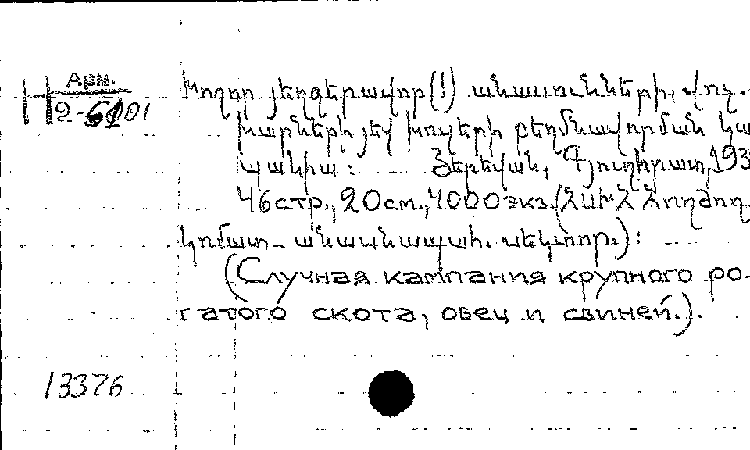 Арм.
Н 2-6101
Խոշոր յեղջերավոր (!) անասունների, վոչ-
խարների յեվ խոզերի բեղմնավորման կա
պանիա: Յերեվան, Գյուղհրատ, 193
46стр., 20см., 4000экз. (ՀՍԽՀ Հողժող
կոմատ - անասնապահ. սեկտոր.):
(Случная кампания крупного ро-
гатого скота, овец и свиней.).
13376